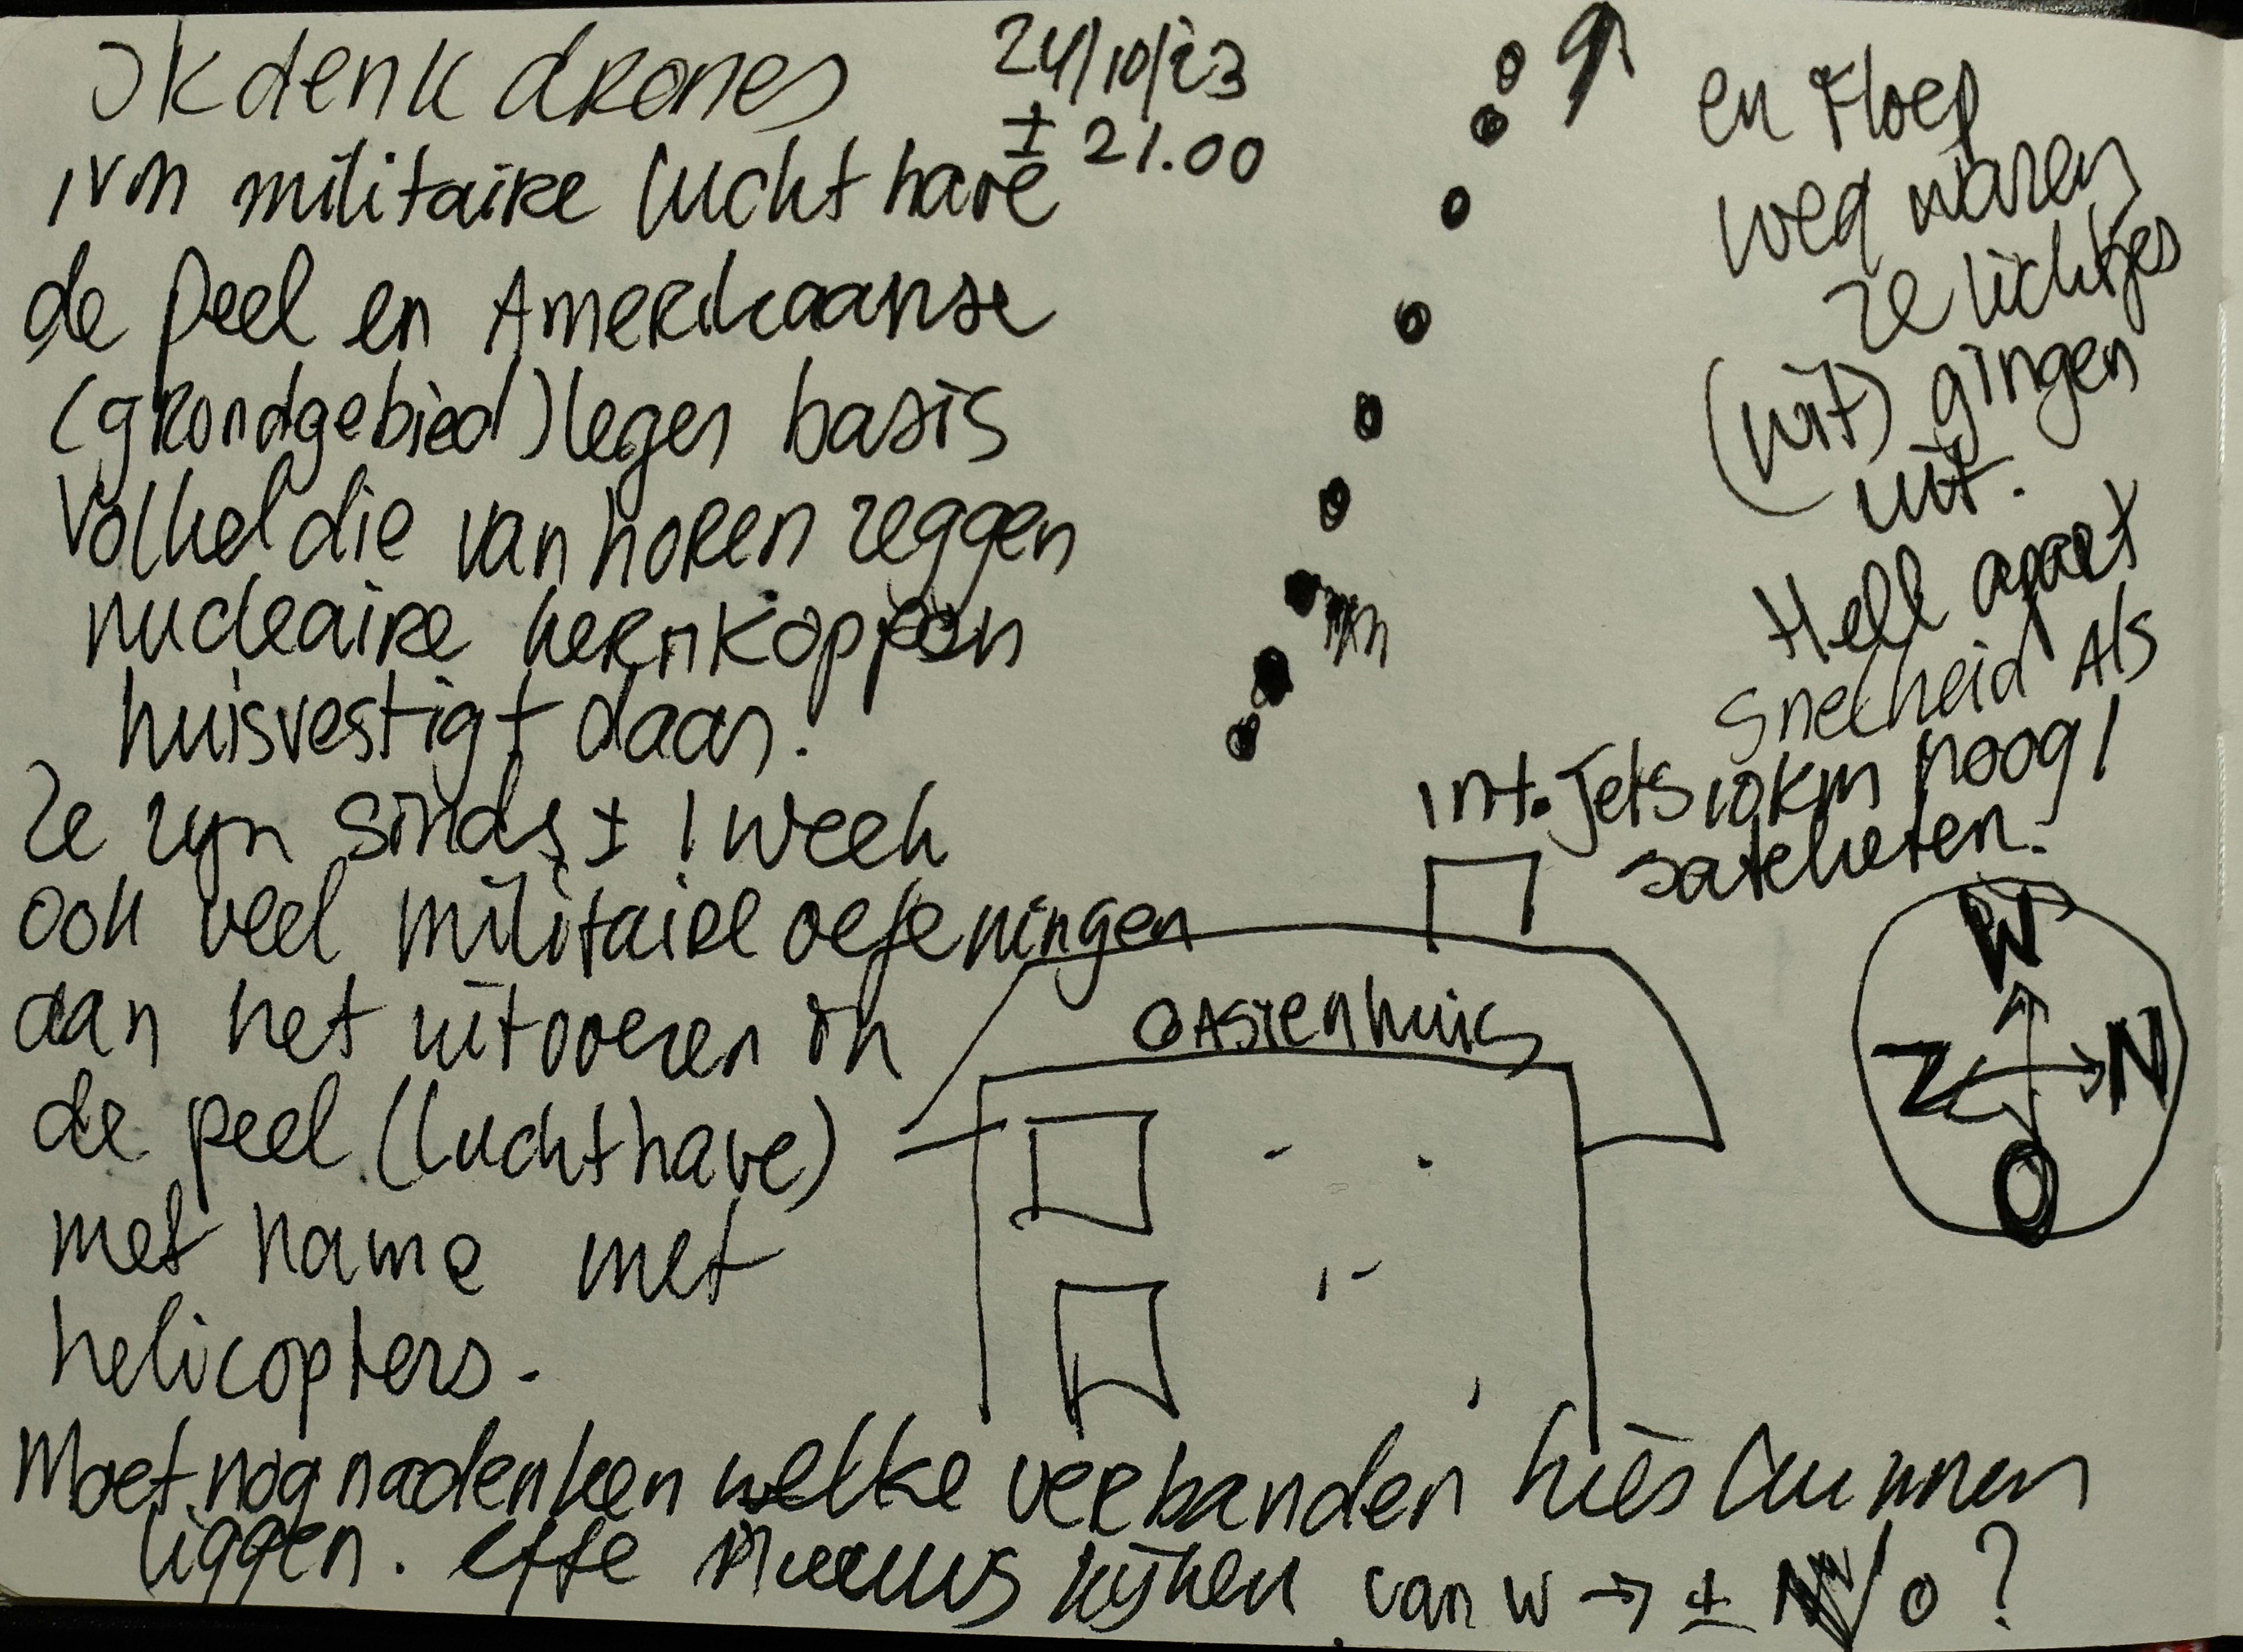 Ik denk drones
ivm militaire luchthave
de peel en Amerikaanse
(grondgebied) leger basis
Volkel die van horen zeggen
nucleaire kernkoppen
huisvestigt daar!
Ze zyn sinds ± 1 week
ook veel militaire oefeningen
aan het uitvoeren in
de peel (luchthave)
met name met
helicopters.
24/10/23
± 21.00
en Floep
weg waren
ze lichtjes
(uit) gingen
uit.
Hell apart
Snelheid Als
int. Jets 10km hoog!
satelieten.
Gastenhuis
W
Z N
O
Moet nog nadenken welke verbanden hier kunnen
liggen. effe nieuws kijken van W → ± N/O?